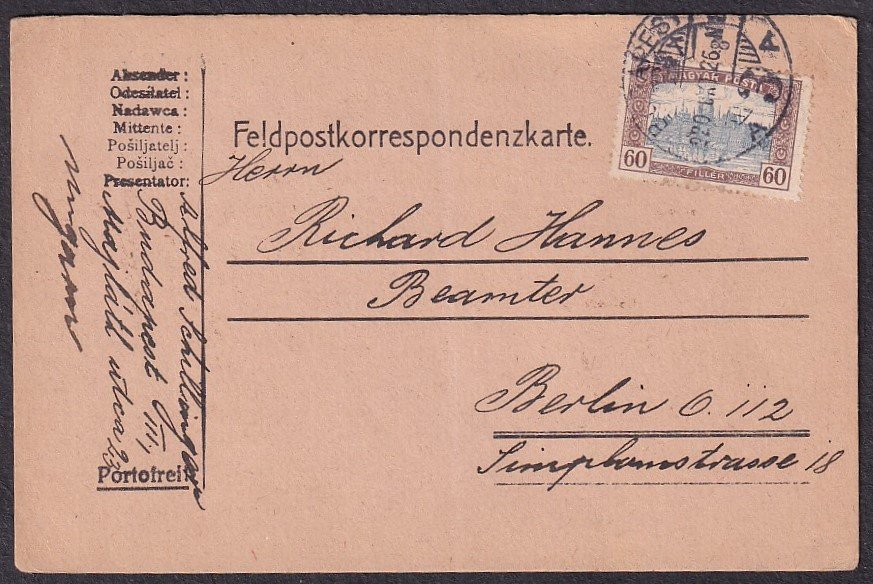 Absender :
Odesilatel :
Nadawca :
Mittente :
Pošiljatelj :
Pošiljač :
Presentator:
Feldpostkorrespondenzkarte.
MAGYAR POSTA
60 FILLÉR 60
Herrn
Richard Hannes
Beamter
Berlin O. 112
Simplonstrasse 18
Alfred Schillinger
Budapest VIII,
utca 23
Ungarn
Portofrei